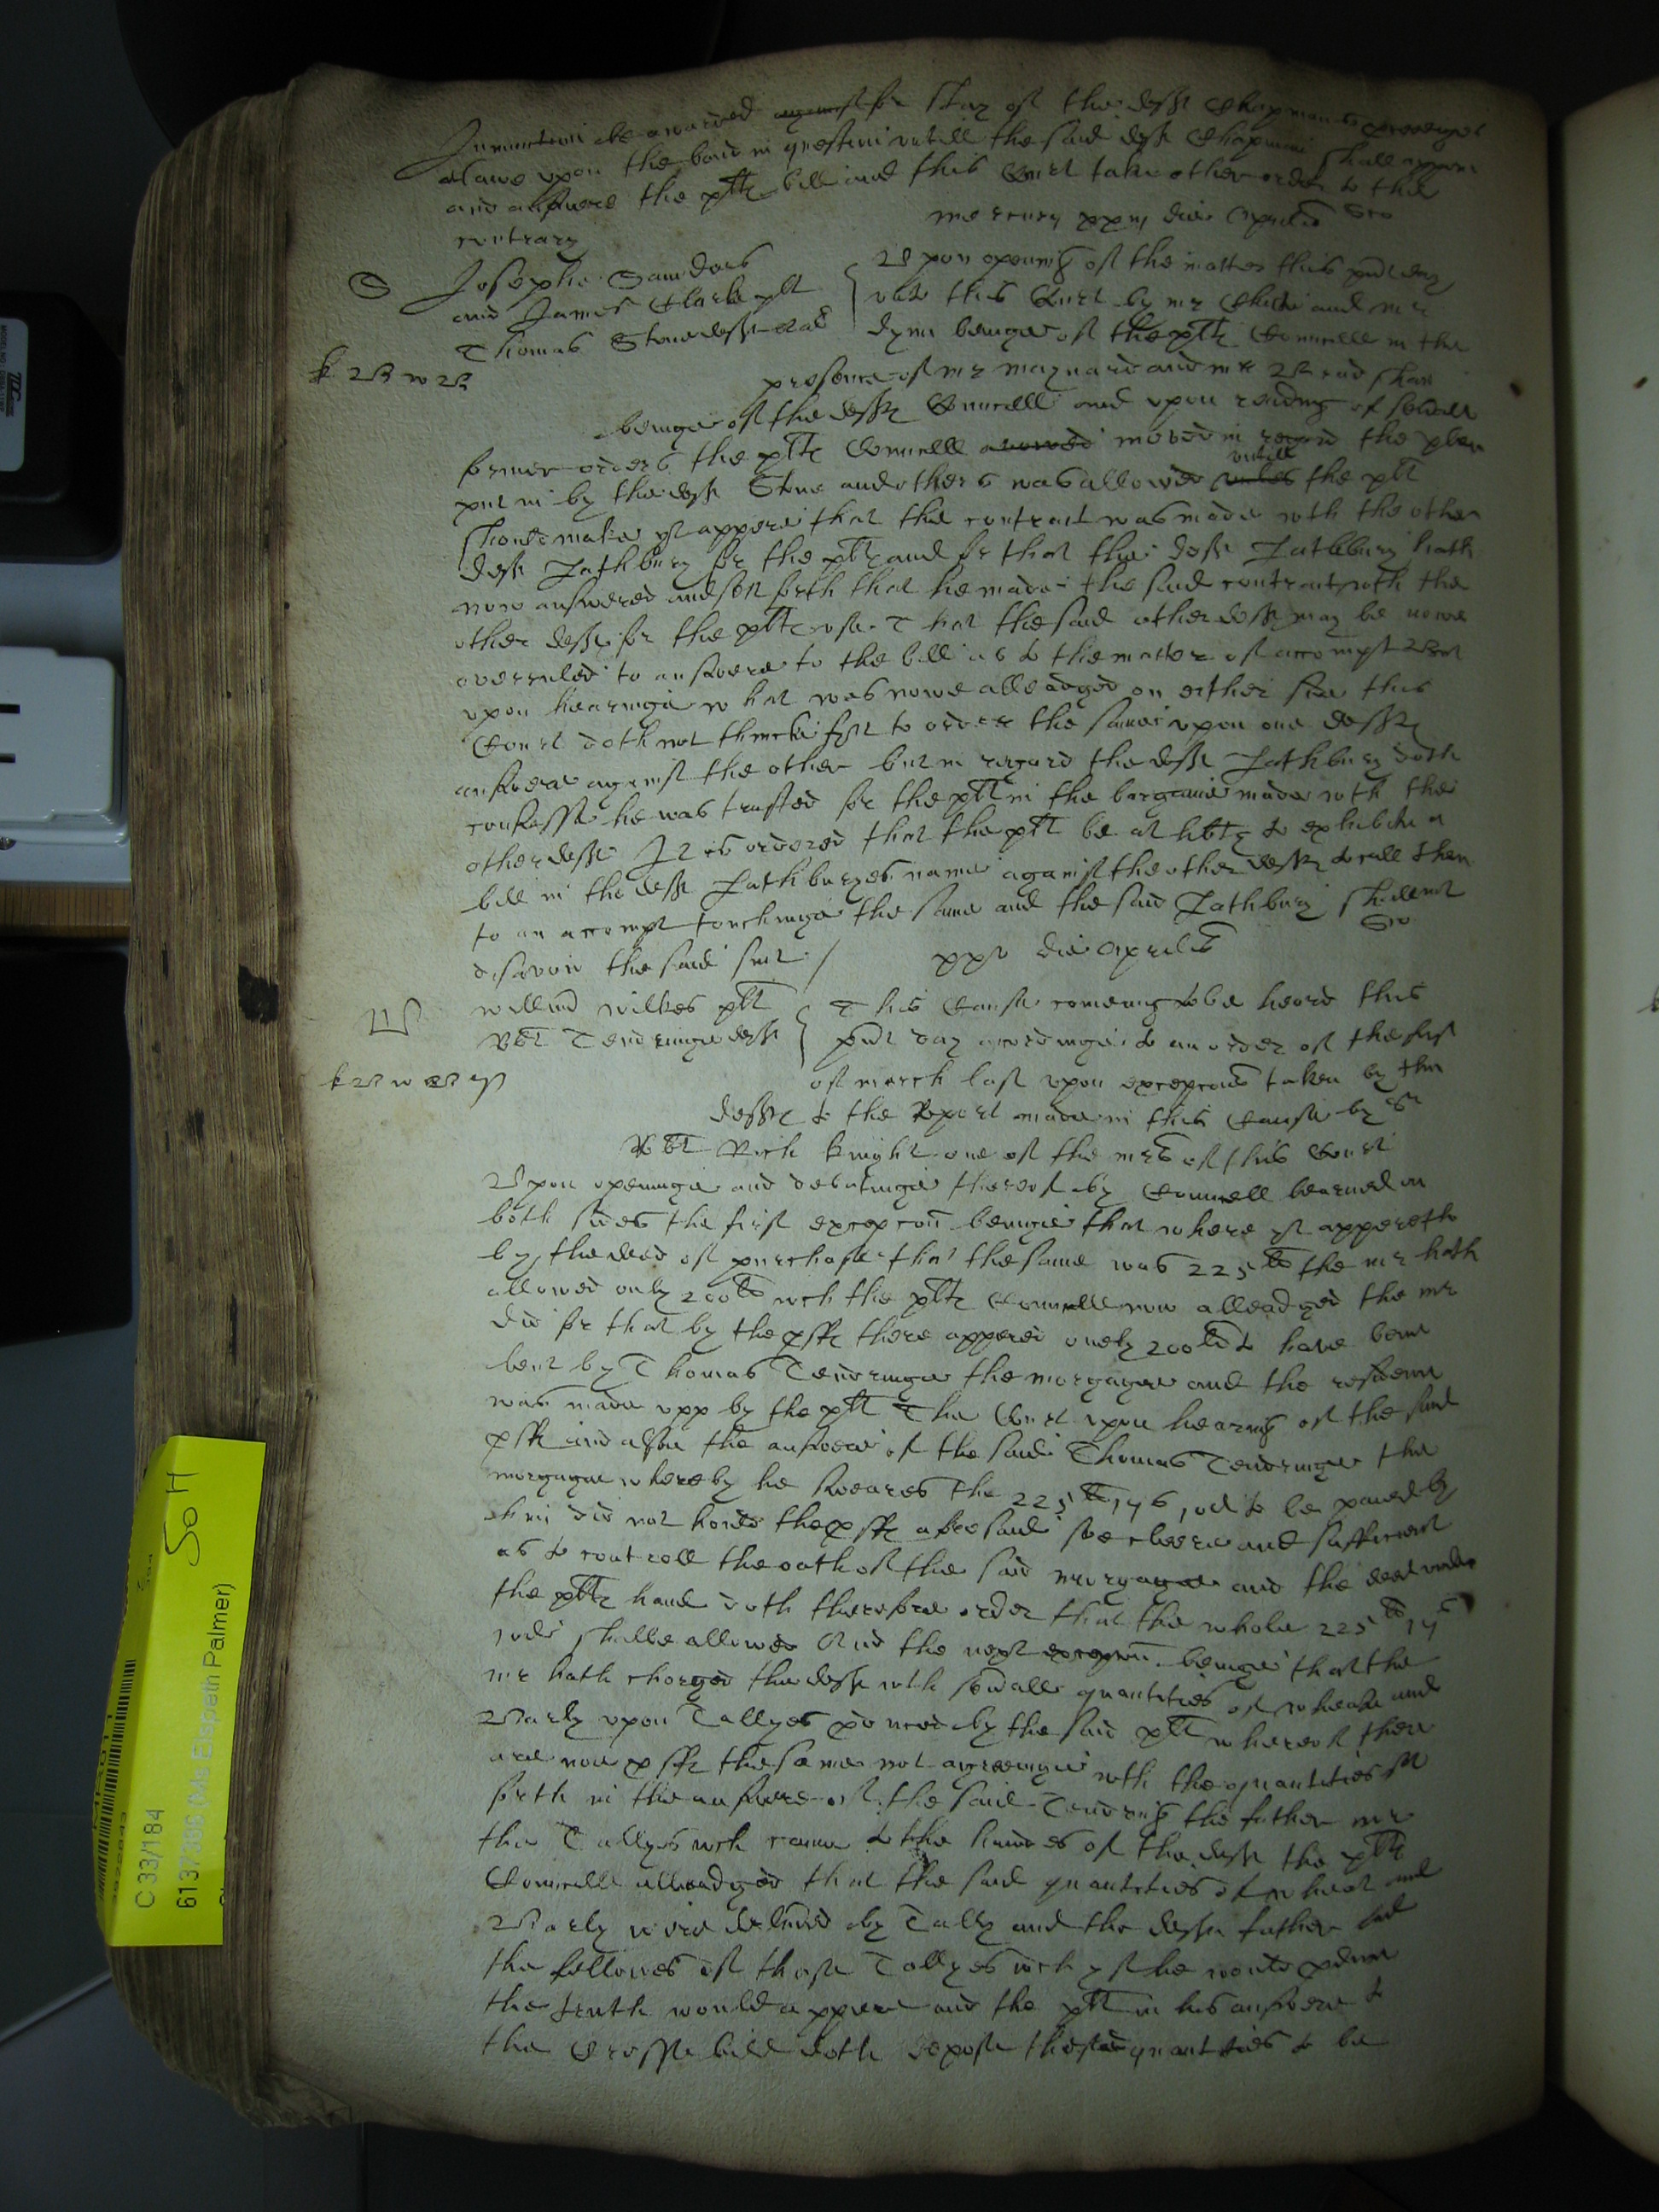 Iniunction be awarded against for stay of the defts Chapmans proceedings
att lawe upon the bond in question untill the said deft Chapman shall appeare
and answere the plts bill and this Court take other order to the
contrary
Mercurij xxiij die Aprilis
Josephe Saunders
and James Clarke plt
Thomas Stone deft
Upon opening of the matter this pnte day
unto this Court by Mr Chute and Mr
being of the plts Councell in the
presence of Mr Maynard and Mr
beinge of the defts Councell and upon reading of sevall
former orders the plts Councell moved in regard the plea
put in by the deft Stone and others was allowed untill the plt
should make yt appere that the contract was made wth the other
deft Lathbury for the plts and for that the deft Lathbury hath
now answered and set forth that he made the said contract wth the
other defts for the plts use That the said other defts may be nowe
overruled to answere to the bill as to the matter of accompt But
upon hearinge what was nowe alleadged on either side this
Court doth not thincke fytt to order the same upon one defts
answere against the other but in regard the deft Lathbury doth
confesse he was trusted for the plt in the bargaine made wth the
other defts It is ordered that the plt be at libty to exhibite a
bill in the deft Lathburyes name against the other defts to call them
to an accompt touchinge the same and the said Lathbury shall not
disavow the said suit /
xxv die Aprilis
Willm Wilkes plt
Robt Tendringe deft
This Cause comeing to be heard this
pnte day accordinge to an order of the first
of March last upon excepcons taken by the
defte to the Report made in this Cause by Sr
Robt Rich knight one of the Mrs of this Court
Upon openinge and debatinge thereof by Councell learned on
both sides the first excepcon beinge that where yt appereth
by the deed of purchase that the same was 225li the Mr hath
allowed only 200li wch the plts Councell now alleadged the Mr
did for that by the pffe there appered onely 200li to have bene
lent by Thomas Tendringe the morgagee and the residew
was made upp by the plt The Court upon hearing of the said
pffe and alsoe the answere of the said Thomas Tendringe the
morgagee whereby he sweares the 225li to be paied by
him did not hould the pffe aforesaid soe cleere and sufficient
as to controll the oath of the said morgagee and the deed under
the plts hand doth therefore order that the whole 225li
shalbe allowed And the next excepcon beinge that the
Mr hath charged the deft wth sevall quantities of wheate and
Barly upon Tallyes pduced by the said plt whereof there
are noe pffe the same not agreeinge wth the quantities sett
forth in the answere of the said Tendring the father nor
the Tallyes wch came to the handes of the deft the plts
Councell alleadged that the said quantities of wheat and
Barly were delived by Tally and the defts father had
the fellowes of those Tallyes wch yf he would pduce
the truth would appere and the plt in his answere to
the Crosse bill doth depose these quantities to be
SoH
C 33/184
(Ms Elspeth Palmer)